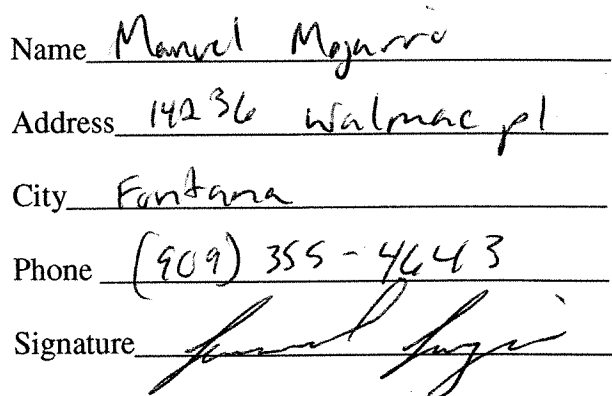 Name Manuel Mojarro
Address 14236 Walmac pl
City Fontana
Phone (909) 355-4643
Signature